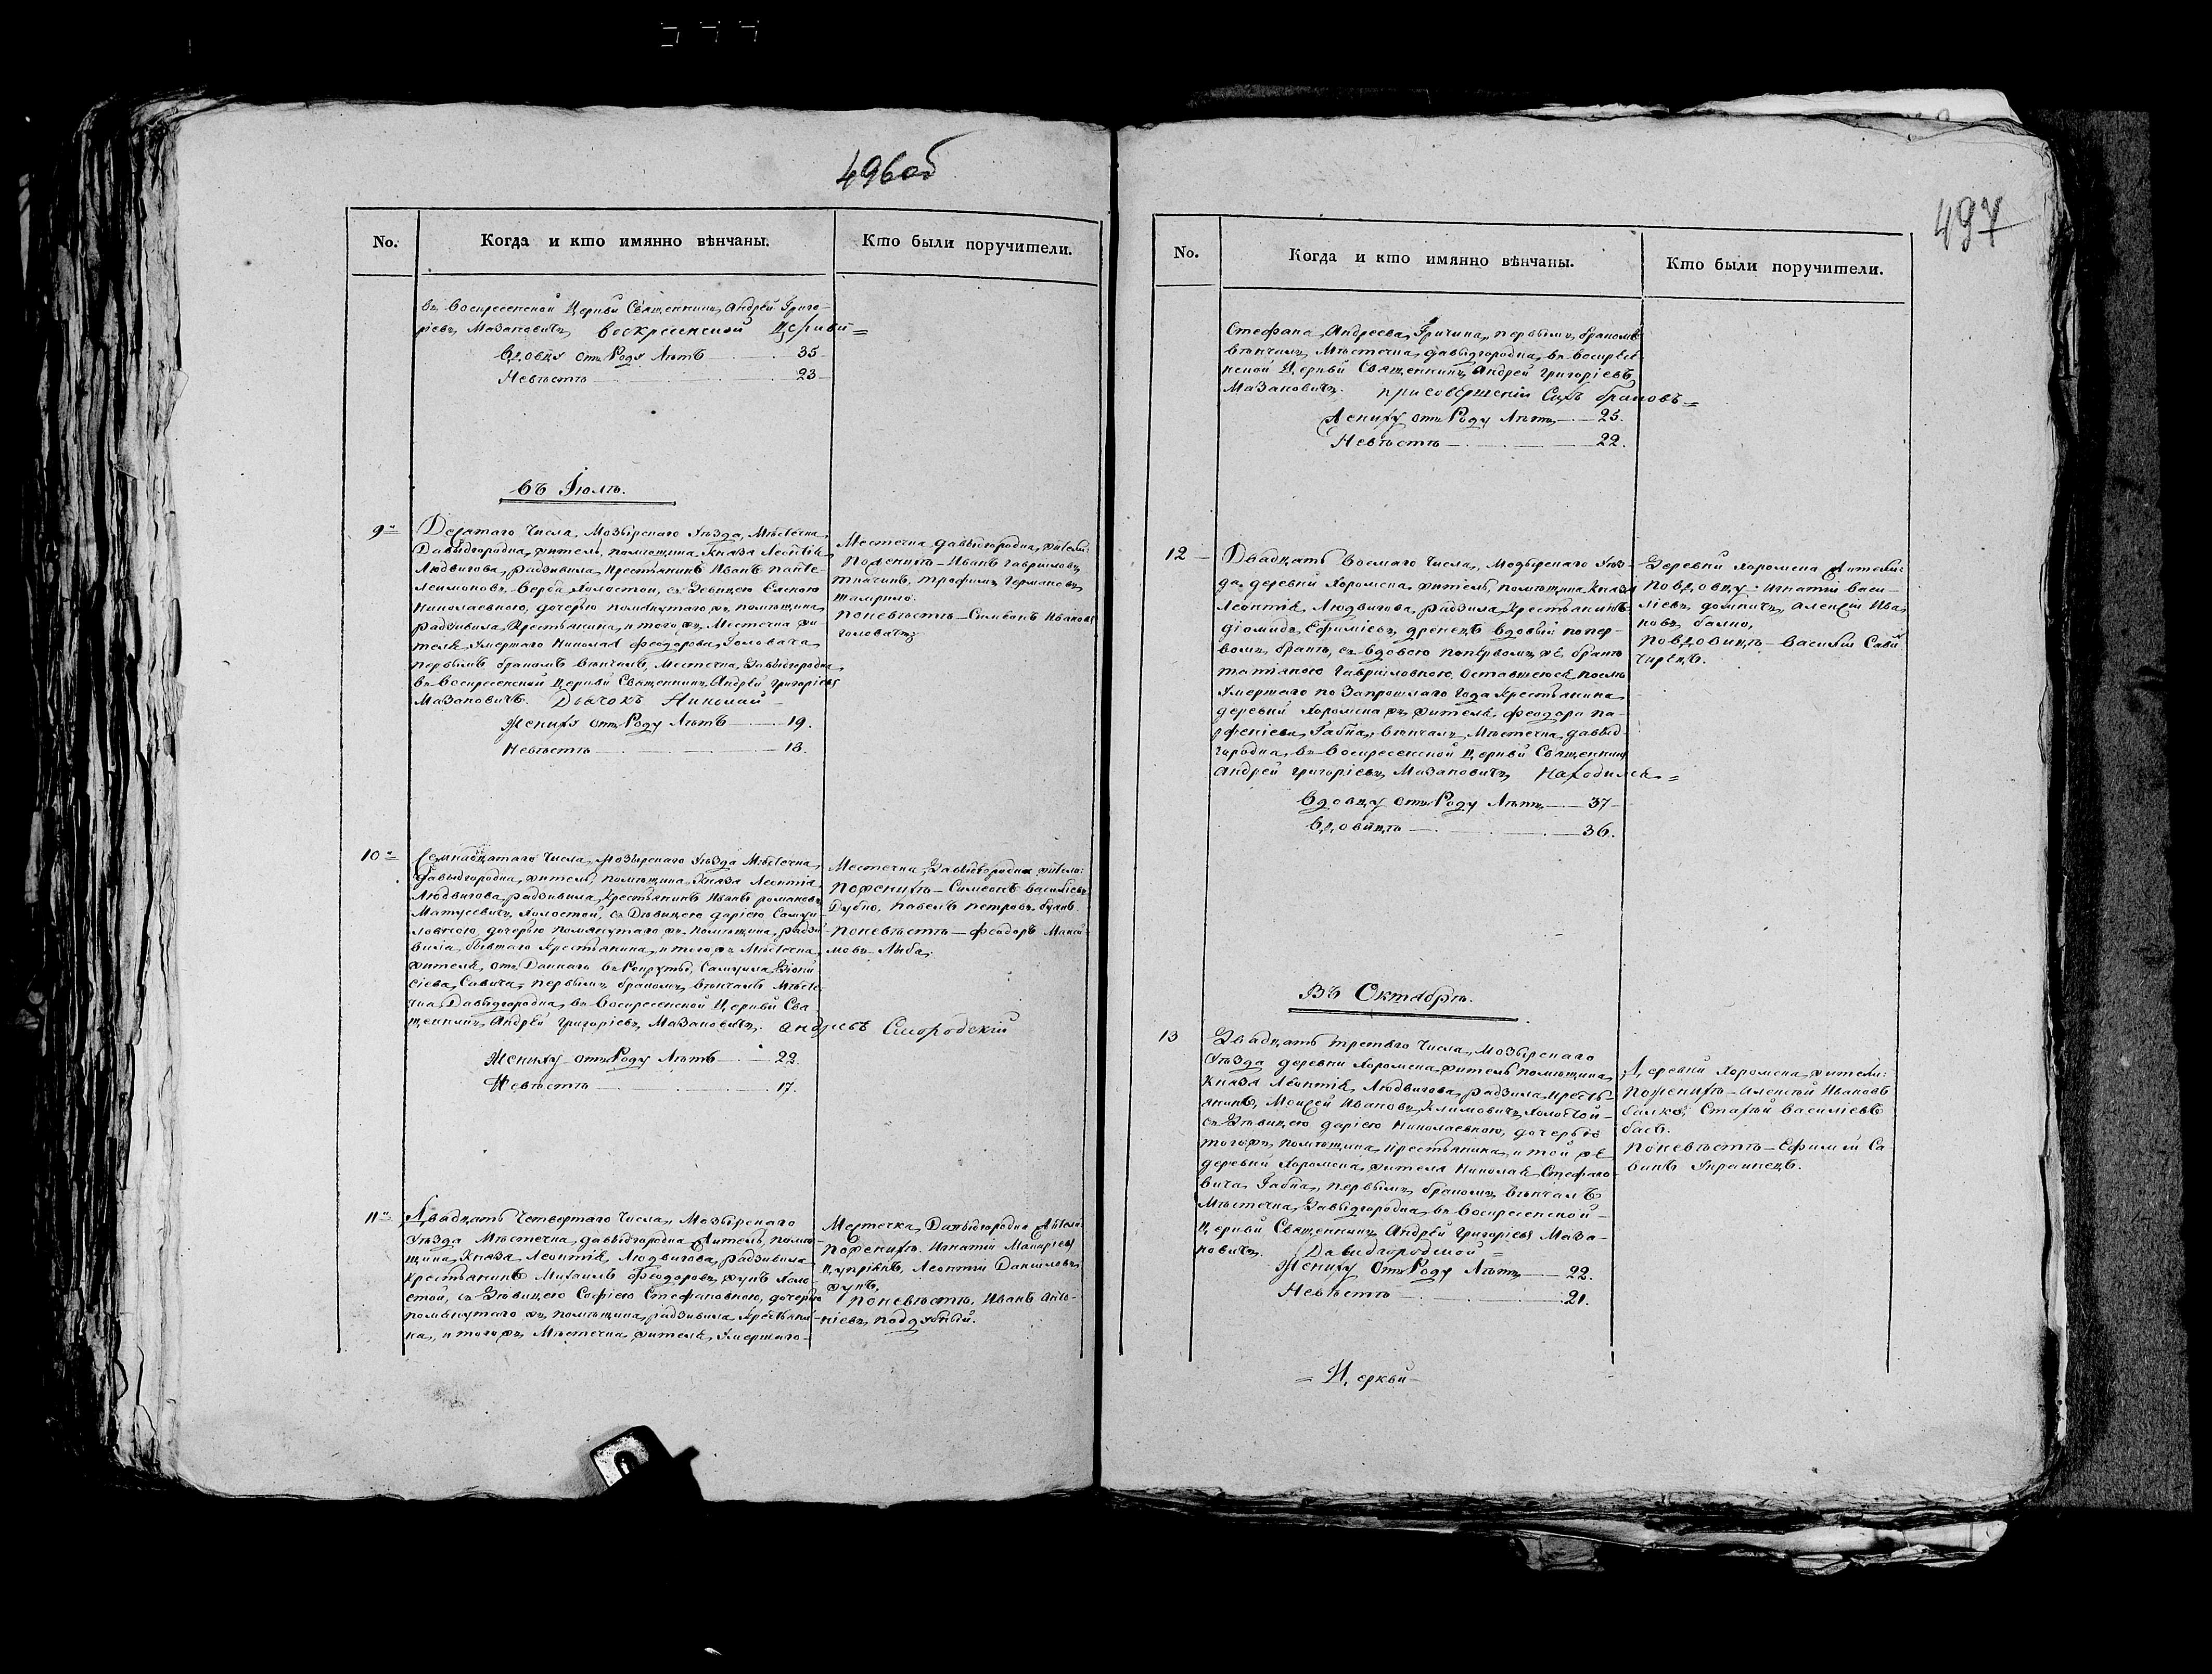 496об
No.
Когда и кто имянно вѣнчаны.
Кто были поручители.
въ Воскресенской Церкви Священникъ Андрей Григо-
ріевъ Мазановичъ Воскресенской Церкви =
Вдовцу отъ Роду Лѣтъ 35
Невѣстѣ 23
Въ Іюлѣ.
9
Десятаго Числа, Мозырскаго Уѣзда, Мѣстечка
Давыдгородка, житель, помѣщика Князя Леонтія
Людвигова, Радзивила Крестьянинъ Иванъ Панте-
леимоновъ Верба Холостой, съ Дѣвицею Еленою
Николаевною, дочерью помянутаго жъ помѣщика
Радзивила, Крестьянина, и того жъ Местечка жи-
теля Умершаго Николая Феодорова, Головача
первымъ бракомъ Вѣнчалъ, Местечка, Давыдгородка
въ Воскресенской Церкви Священникъ Андрей Григоріевъ
Мазановичъ. Дьячокъ Николай
Жениху отъ Роду Лѣтъ 19.
Невѣстѣ 18.
Местечка Давыдгородка, жители:
По Женихѣ - Иванъ Гавриловъ
Ткачикъ, Трофимъ Германовъ
По невѣстѣ - Симеонъ Ивановъ
Головачъ.
10
Семнадцатаго Числа, Мозырскаго Уѣзда Мѣстечка,
Давыдгородка, житель, помѣщика Князя Леонтія
Людвигова, Радзивила, Крестьянинъ Иванъ Романовъ
Матусевичъ, Холостой, съ Дѣвицею Даріею Самуи-
ловною, дочерью помянутаго жъ помѣщика, Радзи-
вила, бывшаго Крестьянина, и того жъ Мѣстечка,
жителя, отъ Даннаго въ Рекруты, Самуила Діони-
сіева, Савича, первымъ бракомъ, Вѣнчалъ Мѣсте-
чка Давыдгородка, въ Воскресенской Церкви Свя-
щенникъ, Андрей Григоріевъ, Мазановичъ. Андреевъ Смородскій
Жениху отъ Роду Лѣтъ 22.
Невѣстѣ 17.
Местечка, Давыдгородка жители:
По женихѣ - Симеонъ Васильевъ
Дубко, Павелъ Петровъ
По невѣстѣ - Феодоръ Макси-
мовъ Лыба.
11
Двадцать Четвертаго Числа, Мозырскаго
Уѣзда Мѣстечка, Давыдгородка Житель, помѣ-
щика, Князя, Леонтія, Людвигова, Радзивила
Крестьянинъ Михаилъ Феодоровъ, Жукъ Холо-
стой, съ Дѣвицею Софіею Стефановною, дочерью
помянутаго жъ, помѣщика, Радзивила Крестьяни-
на, и того жъ, Мѣстечка, жителя, Умершаго
Местечка, Давыдгородка Жители:
По женихѣ. Игнатій Макаріевъ
Леонтій Даниловъ
Жукъ,
По невѣстѣ, Иванъ Анто-
ніевъ, Поддубный.
497
No.
Когда и кто имянно вѣнчаны.
Кто были поручители.
Стефана, Андреева, Гричика, первымъ, бракомъ
Вѣнчалъ, Мѣстечка, Давыдгородка, въ Воскресе-
нской Церкви Священникъ Андрей Григоріевъ,
Мазановичъ. При совершеніи Сихъ браковъ =
Жениху отъ Роду Лѣтъ 25.
Невѣстѣ 22.
12
Двадцать Восмаго Числа, Мозырскаго Уѣз-
да, деревни Хоромска житель, помѣщика Князя
Леонтія, Людвигова, Радзила, Крестьянинъ
Діомидъ, Ефиміевъ, Вдовый по пер-
вомъ бракѣ, съ вдовою по первомъ же бракѣ
Татіаною Гавриловною, Оставшеюся послѣ
Умершаго по Запрошлаго Года Крестьянина
деревни Хоромска жъ жителя, Феодора Па-
рфеніева, Вѣнчалъ, Мѣстечка, Давыд-
городка, въ Воскресенской Церкви Священникъ
Андрей Григоріевъ, Мазановичъ Находился =
Вдовцу отъ Роду Лѣтъ 37
Вдовицѣ 36.
Деревни Хоромска Жители:
По вдовцу - Игнатій Васи-
ліевъ, Алексѣй Ива-
новъ Балко,
По вдовицѣ - Василій Сави
Въ Октябрѣ.
13
Двадцать третьяго Числа, Мозырскаго
Уѣзда деревни Хоромска, житель помѣщика
Князя Леонтія, Людвигова, Радзила, Кресть-
янинъ, Моисей Ивановъ, Климовичъ, Холостой
съ Дѣвицею Даріею Николаевною, дочерью
того жъ, помѣщика, Крестьянина, и той же
деревни Хоромска, жителя Николая Стефано-
вича первымъ бракомъ Вѣнчалъ
Мѣстечка, Давыдгородка, въ Воскресенской
Церкви Священникъ Андрей Григоріевъ Маза-
новичъ. Давидгородской =
Жениху отъ Роду Лѣтъ 22.
Невѣстѣ 21.
Деревни Хоромска жители:
По женихѣ - Алексѣй Ивановъ
Балко, Василіевъ
По невѣстѣ - Ефимій Са-
винъ Украинецъ.
= Церкви